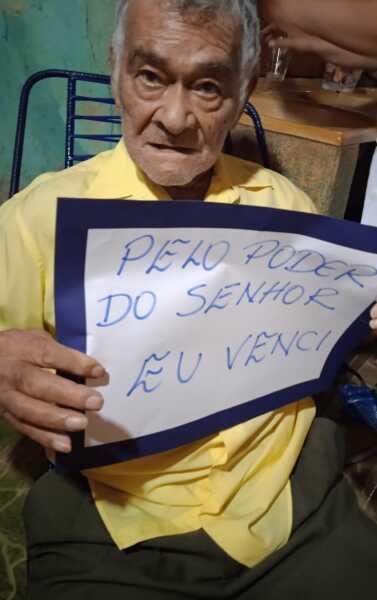 PELO PODER
DO SENHOR
EU VENCI